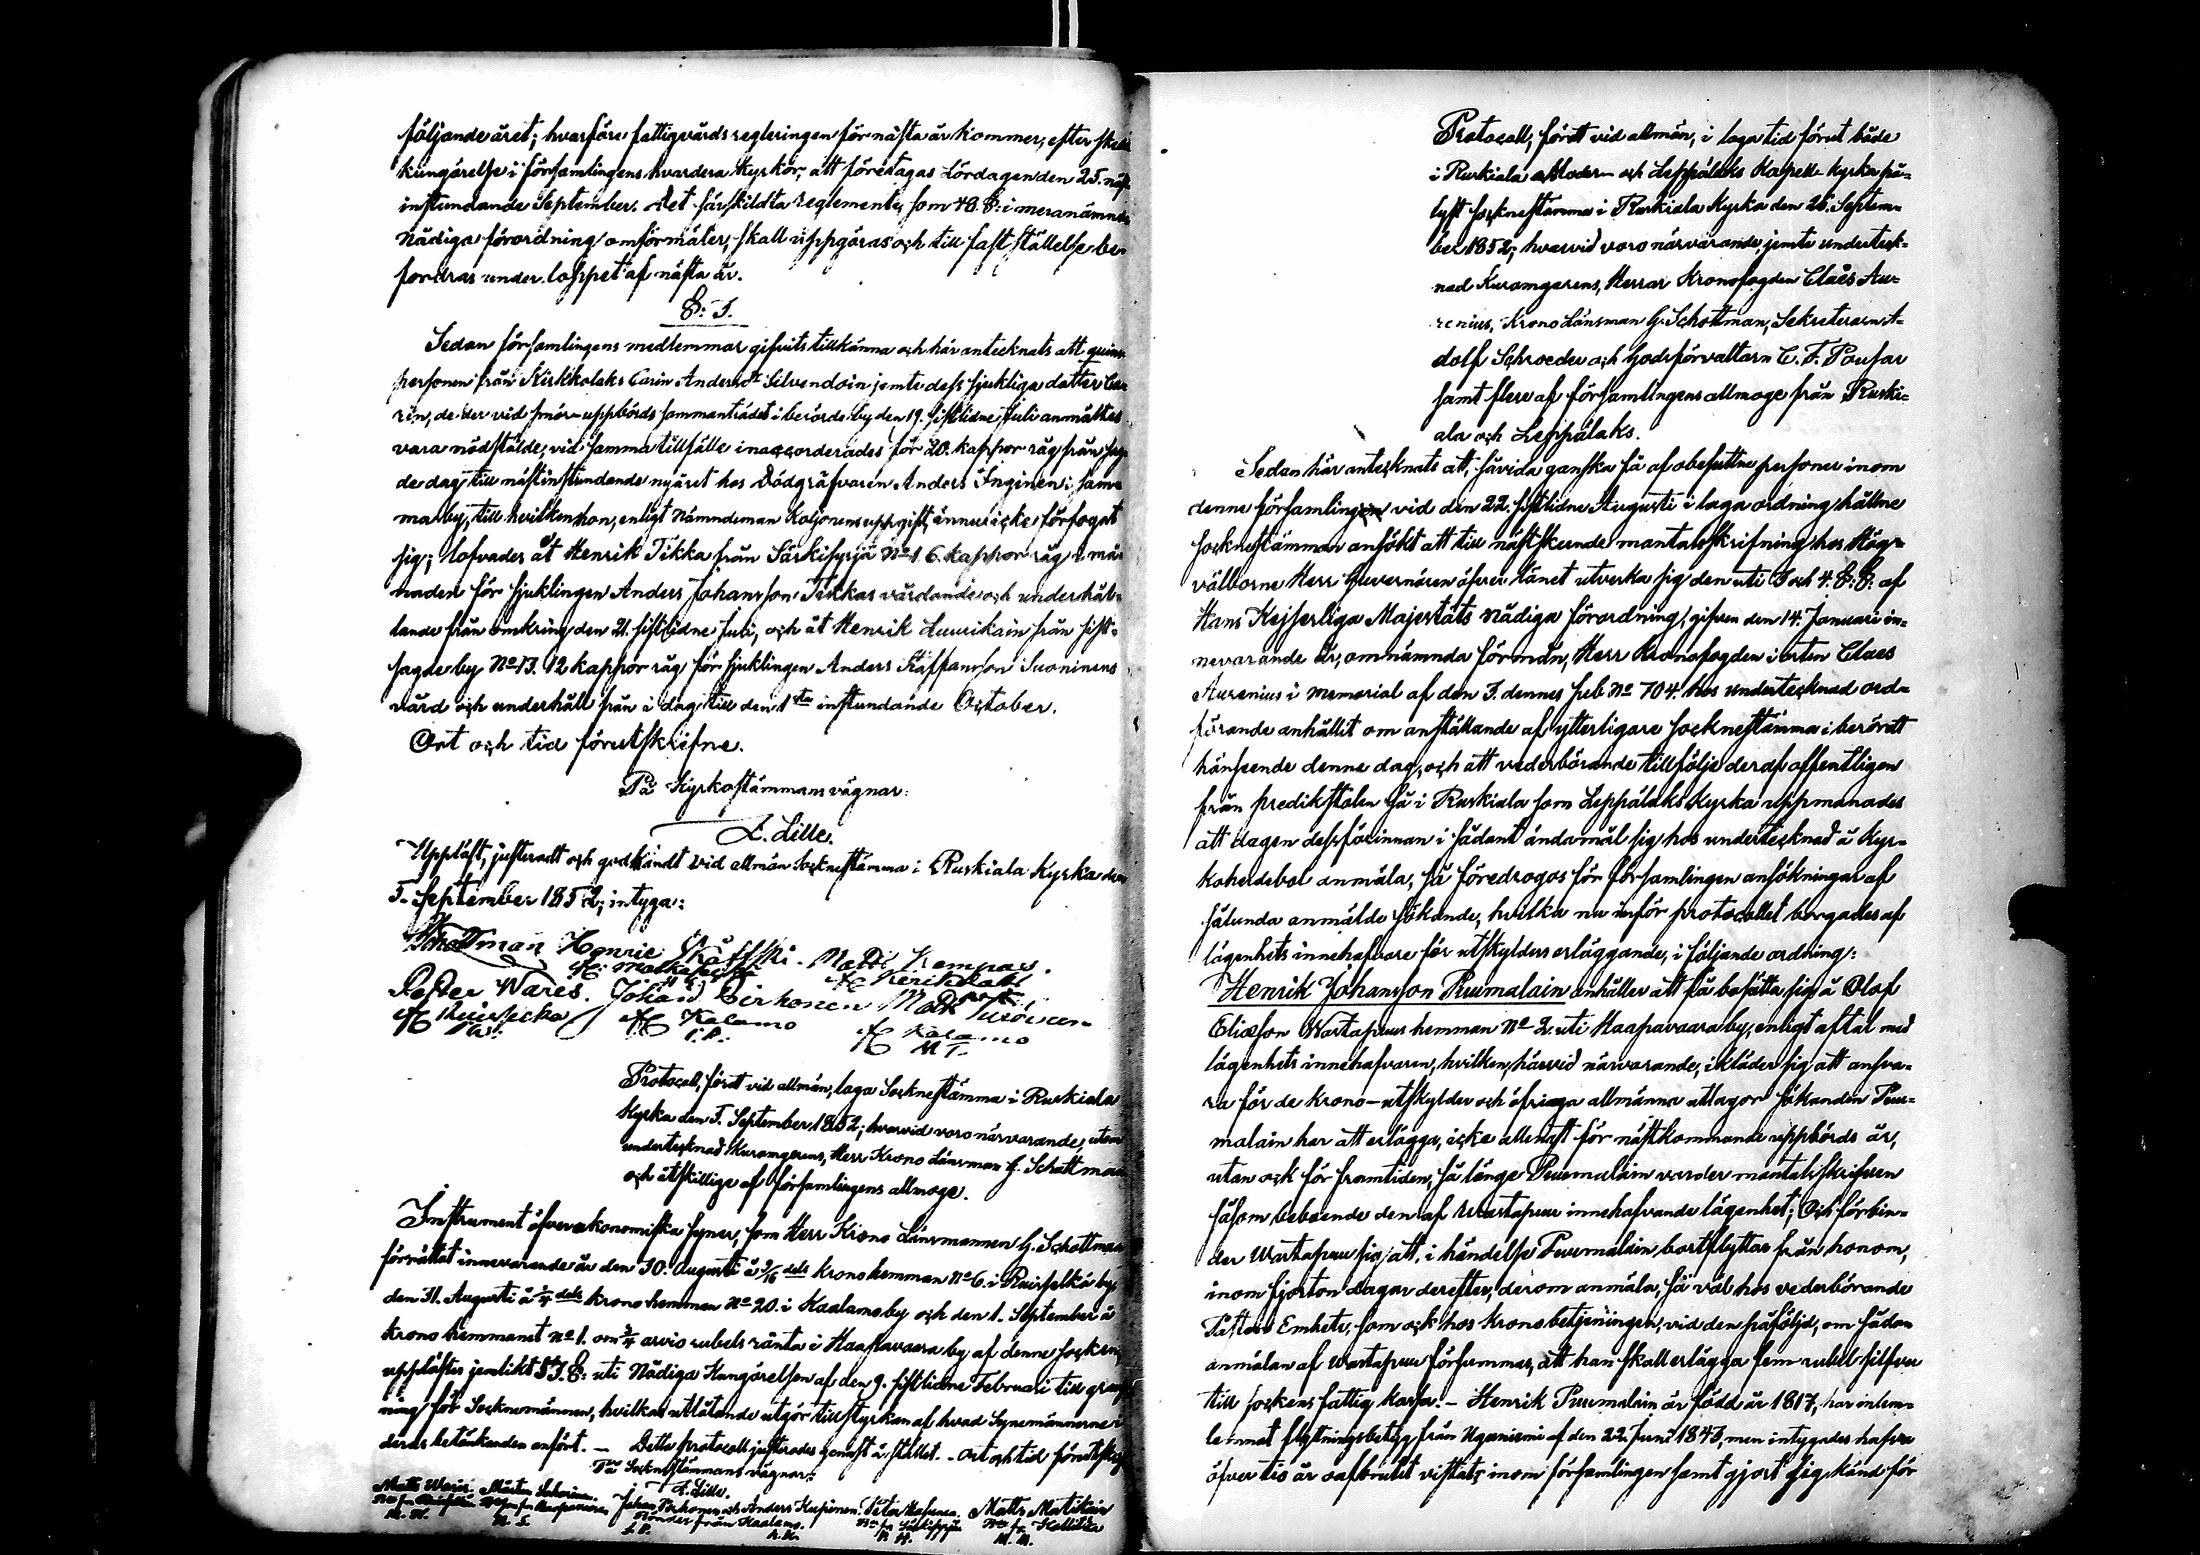 följande året; hvarföre fattigvårds regleringen för nästa år kommer, efter
kungörelse i församlingens hvardera Kyrkor, att företagas Lördagen den 25.
instundande September. Det särskildta reglemente, som 48. §. i meranämnde
Nådiga förordning omförmäler, skall uppgöras och till fastställelse be-
fordras under loppet af nästa år.
§: 5.
Sedan församlingens medlemmar gifvits tillkänna och här antecknats att quins-
personen från Kirkkolaks Carin Andersdr Silvendoin jemte dess sjukliga dotter Ca-
rin, de der vid smör-uppbörds sammanträdet i berörde by den 19. sistlidne Juli anmältes
vara nödstälde, vid samma tillfälle inaccorderades för 20. kappor råg från sag-
de dag till nästinstundande nyåret hos Dödgräfvaren Anders Inginen i sam-
ma by, till hvilken hon, enligt Nämndeman Koljonens uppgift, ännu icke förfogat
sig; lofvades åt Henrik Tikka från Särkisyrjä No 1. 6. kappor råg i må-
naden för sjuklingen Anders Johansson Tikkas vårdande och underhål-
lande från omkring den 21. sistlidne Juli, och åt Henrik Huurikain från sist-
sagde by No 13. 12 kappor råg för sjuklingen Anders Staffansson Suoninens
vård och underhåll från i dag till den 1sta instundande October.
Ort och tid förutskrifne.
På Kyrkostämmans vägnar:
A. Lille.
Uppläst, justeradt och godkändt vid allmän Sockenstämma i Ruskiala Kyrka den
5. September 1852; intyga:
Schottman Henric Matti Kempas.
Petter Wares. Johan Pirhonen Matts
Kalamo Kalamo
P.W. J.P. M T.
Protocoll, fördt vid allmän, laga Sockenstämma i Ruskiala
Kyrka den 5. September 1852; hvarvid voro närvarande, utom
undertecknad Kuramgerens, Herr Krono Länsman G. Schottman
och åtskillige af församlingens allmoge.
Instrument öfver ekonomiska syner, som Herr Krono Länsmannen G. Schottman
förrättat innevarande år den 30. Augusti å 3/16 dels krono hemman No 6. i Ruiselkä by,
den 31. Augusti å 1/4 dels krono hemman No 20. i Kaalamo by och den 1. September å
krono hemmanet No 1. om 3/4 arvio rubels ränta i Haapavaara by af denne socken,
upplästes jemlikt 53. §. uti Nådiga Kungörelsen af den 9. sistlidne Februari till gransk-
ning för Socknemännen, hvilkas utlåtande utgör tillstyrkan af hvad Synemännerne i
deras betänkanden anfört. — Detta protocoll justerades genast å stället. - Ort och tid förutskr.
På Socknestämmans vägnar:
A. Lille.
Matts Wares. Mårten
Johan Pirhonen och Anders Kupinen. Peter Matts Matikain
Bönder från Kaalamo.
J. P. A. K. M. M.
Protocoll, fördt vid allmän, i laga tid förut både
i Ruskiala Moder- och Leppälaks Kapell-kyrka på-
lyst sockenstämma i Ruskiala Kyrka den 26. Septem-
ber 1852; hvarvid voro närvarande, jemte underteck-
nad Kuramgerens, Herrar Kronofogden Claës Au-
renius, Krono Länsman G. Schottman, Sekreteraren A-
dolf Schroeder och Godsförvaltarn C. F. Pousar
samt flere af församlingens allmoge från Ruski-
ala och Leppälaks.
Sedan här antecknats att, såvida ganska få af obesuttne personer inom
denne församling vid den 22. sistlidne Augusti i laga ordning hållne
socknestämman ansökt att till nästskeende mantalsskrifning hos Hög-
välborne Herr Guvernören öfver länet utverka sig den uti 3 och 4. §.§. af
Hans Kejserliga Majestäts Nådiga förordning, gifven den 14. Januari in-
nevarande år, omnämnda förmån, Herr Kronofogden i orten Claes
Aurenius i memorial af den 3. dennes sub No 704. hos undertecknad ord-
förande anhållit om anställande af ytterligare sockenstämma i berördt
hänseende denne dag, och att vederbörande till följe deraf offentligen
från predikstolen så i Ruskiala som Leppälaks Kyrka uppmanades
att dagen dessförinnan i sådant ändamål sig hos undertecknad å Kyr-
koherdebol anmäla, så föredrogos för församlingen ansökningar af
sålunda anmälde sökande, hvilka nu inför protocollet borgades af
lägenhets innehafvare för utskylders erläggande, i följande ordning:
Henrik Johansson Puumalain anhåller att få bosätta sig å Olof
Eliasson Wartapuus hemman No 2. uti Haapavaara by, enligt aftal med
lägenhets innehafvaren, hvilken, härvid närvarande, ikläder sig att ansva-
ra för de krono-utskylder och öfriga allmänna utlagor sökanden Puu-
malain har att erlägga, icke allenast för nästkommande uppbörds år,
utan ock för framtiden, så länge Puumalain varder mantalsskrifven
såsom boende å den af Wartapuu innehafvande lägenhet; Och förbin-
der Wartapuu sig att, i händelse Puumalain bortflyttar från honom,
inom fjorton dagar derefter, derom anmäla, så väl hos vederbörande
Pastors Embete, som ock hos Kronobetjeningen, vid den påföljd, om sådan
anmälan af Wartapuu försummas, att han skall erlägga fem rubel silfver
till sockens fattig kassa! — Henrik Puumalain är född år 1817, har inlem-
lemnat flyttningsbetyg från Uguniemi af den 22. Juni 1843, men intygades hafva
öfver tio år oafbrutit vistats inom församlingen samt gjort sig känd för